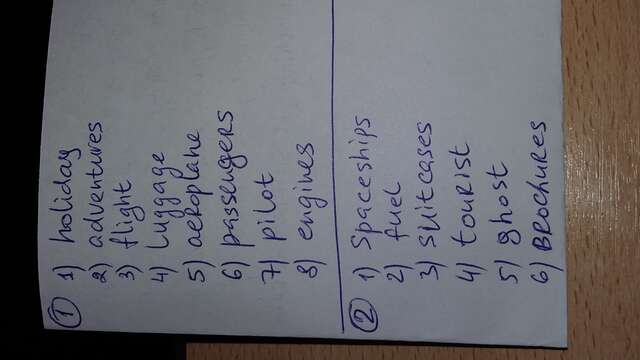 1 1) holiday
2) adventures
3) flight
4) Luggage
5) aeroplane
6) passengers
7) pilot
8) engines
2 1) Spaceships
2) fuel
3) suitcases
4) tourist
5) ghost
6) BROCHURES